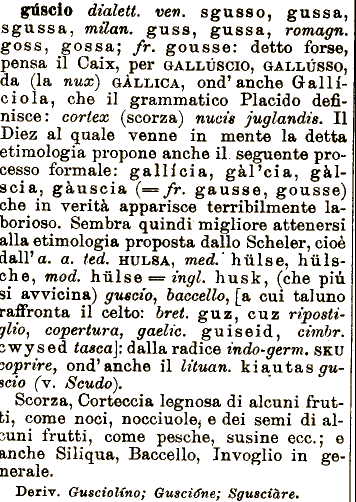 gúscio dialett. ven. sgusso, gussa,
sgussa, milan. guss, gussa, romagn.
goss, gossa; fr. gousse: detto forse,
pensa il Caix, per GALLÚSCIO, GALLÚSSO,
da (la nux) GÁLLICA, ond'anche Gallí-
ciola, che il grammatico Placido defi-
nisce: cortex (scorza) nucis juglandis. Il
Diez al quale venne in mente la detta
etimologia propone anche il seguente pro-
cesso formale: gallícia, gàl'cia, gàl-
scia, gàuscia (= fr. gausse, gousse)
che in verità apparisce terribilmente la-
borioso. Sembra quindi migliore attenersi
alla etimologia proposta dallo Scheler, cioè
dall'a. a. ted. HULSA, med. hülse, hüls-
che, mod. hülse = ingl. husk, (che piú
si avvicina) guscio, baccello, [a cui taluno
raffronta il celto: bret. guz, cuz riposti-
glio, copertura, gaelic. guiseid, cimbr.
cwysed tasca]: dalla radice indo-germ. SKU
coprire, ond'anche il lituan. kiautas gu-
scio (v. Scudo).
Scorza, Corteccia legnosa di alcuni frut-
ti, come noci, nocciuole, e dei semi di al-
cuni frutti, come pesche, susine ecc.; e
anche Siliqua, Baccello, Invoglio in ge-
nerale.
Deriv. Gusciolíno; Gusción­e; Sgusciàre.